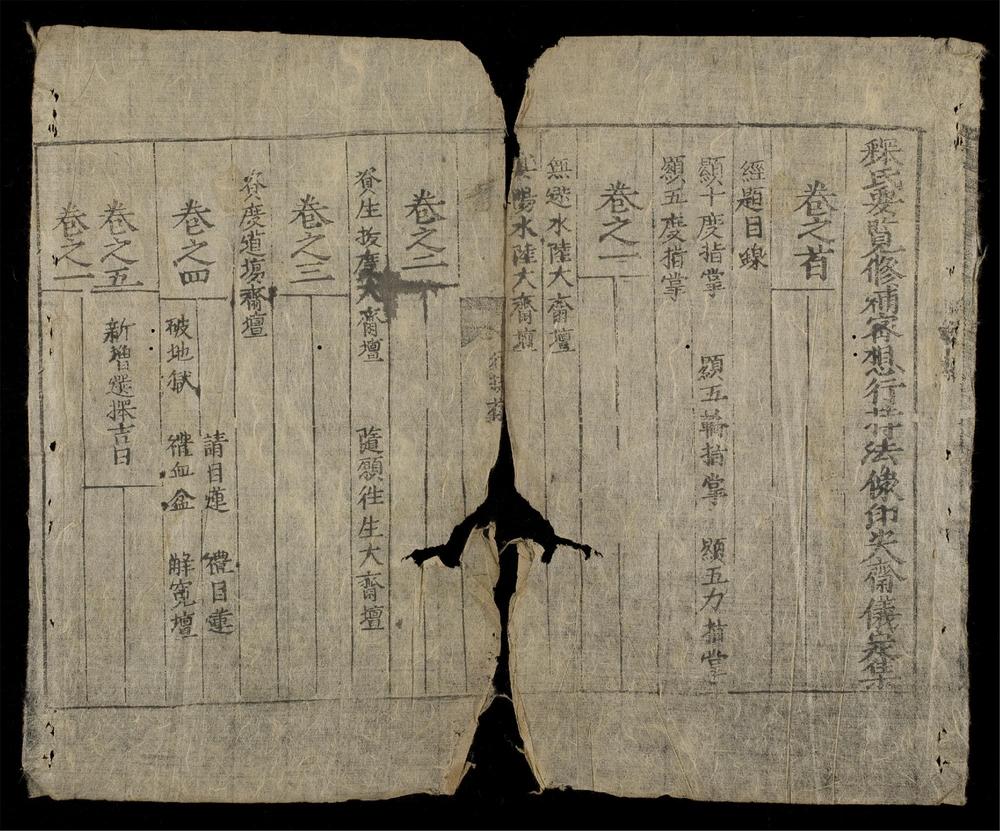 釋氏要覧修補客想行持法像印大齋儀定集
卷之首
經題目錄
顯十度指掌 顯五輪指掌 顯五力指掌
顯五度指掌
卷之一
無遮水陸大齋壇
陽水陸大齋壇
卷之二
資生拔度大齋壇 隨願往生大齋壇
卷之三
資度道塲齋壇
卷之四
請目蓮 禮目蓮
破地獄 禮血盆 解寃壇
卷之五
新增選擇吉日
卷之一